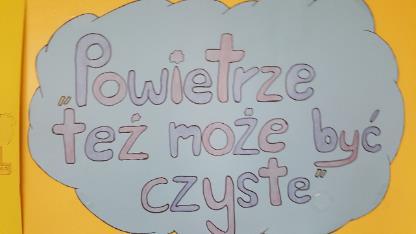 Powietrze
"też może być
czyste"